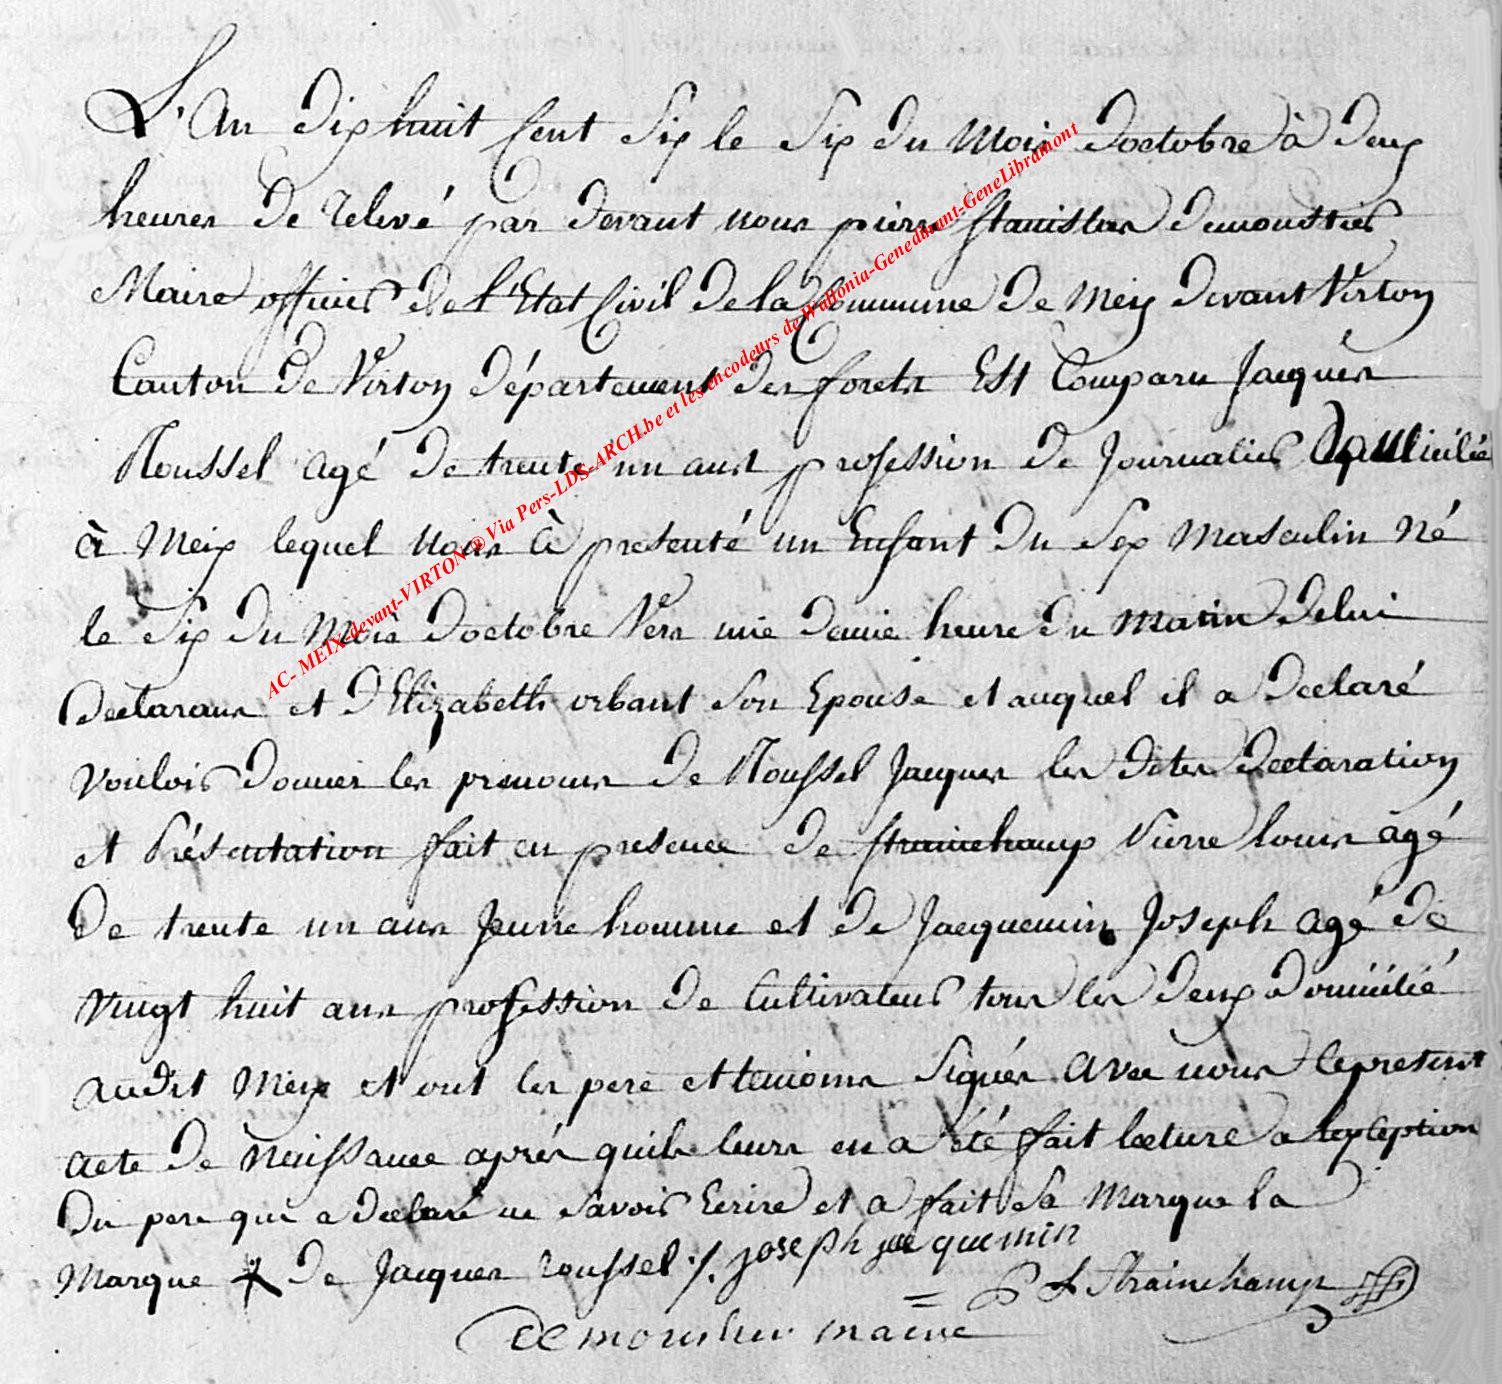 L'an dix huit Cent Six le Six du Mois doctobre à deux
heures de relevé par devant nous pierre stanislas demoustier
Maire officier de l'Etat Civil de la Commune de Meix devant Virton
Canton de Virton département des forets Est Comparu Jacques
Roussel agé de trente un ans profession de Journalier Domicilié
à Meix lequel nous à presenté un Enfant du Sex Masculin Né
le Six du Mois doctobre Vers une demie heure du Matin de lui
declarans et d'Elizabeth urbant Son Epouse et auquel il a declaré
vouloir donner les prenoms de Roussel Jacques les dites declaration
et Présentation fait en presence de strainchamp Pierre louis agé
de trente un ans Jeune homme et de Jacquemin Joseph agé de
vingt huit ans profession de Cultivateur tous les deux domicilié
audit Meix et ont les pere et temoins Signés avec nous le present
acte de Naissance aprés quils leurs en a été fait lecture a lexception
du pere qui a declaré ne savoir Ecrire et a fait sa Marque la
Marque de Jacques roussel ./. joseph jacquemin
P L Strainchamp
demoustier maire
AC- MEIX-devant-VIRTON ® Via Pers-LDS-ARCH.be et les encodeurs de Wallonia-Genedinant-GeneLibramont